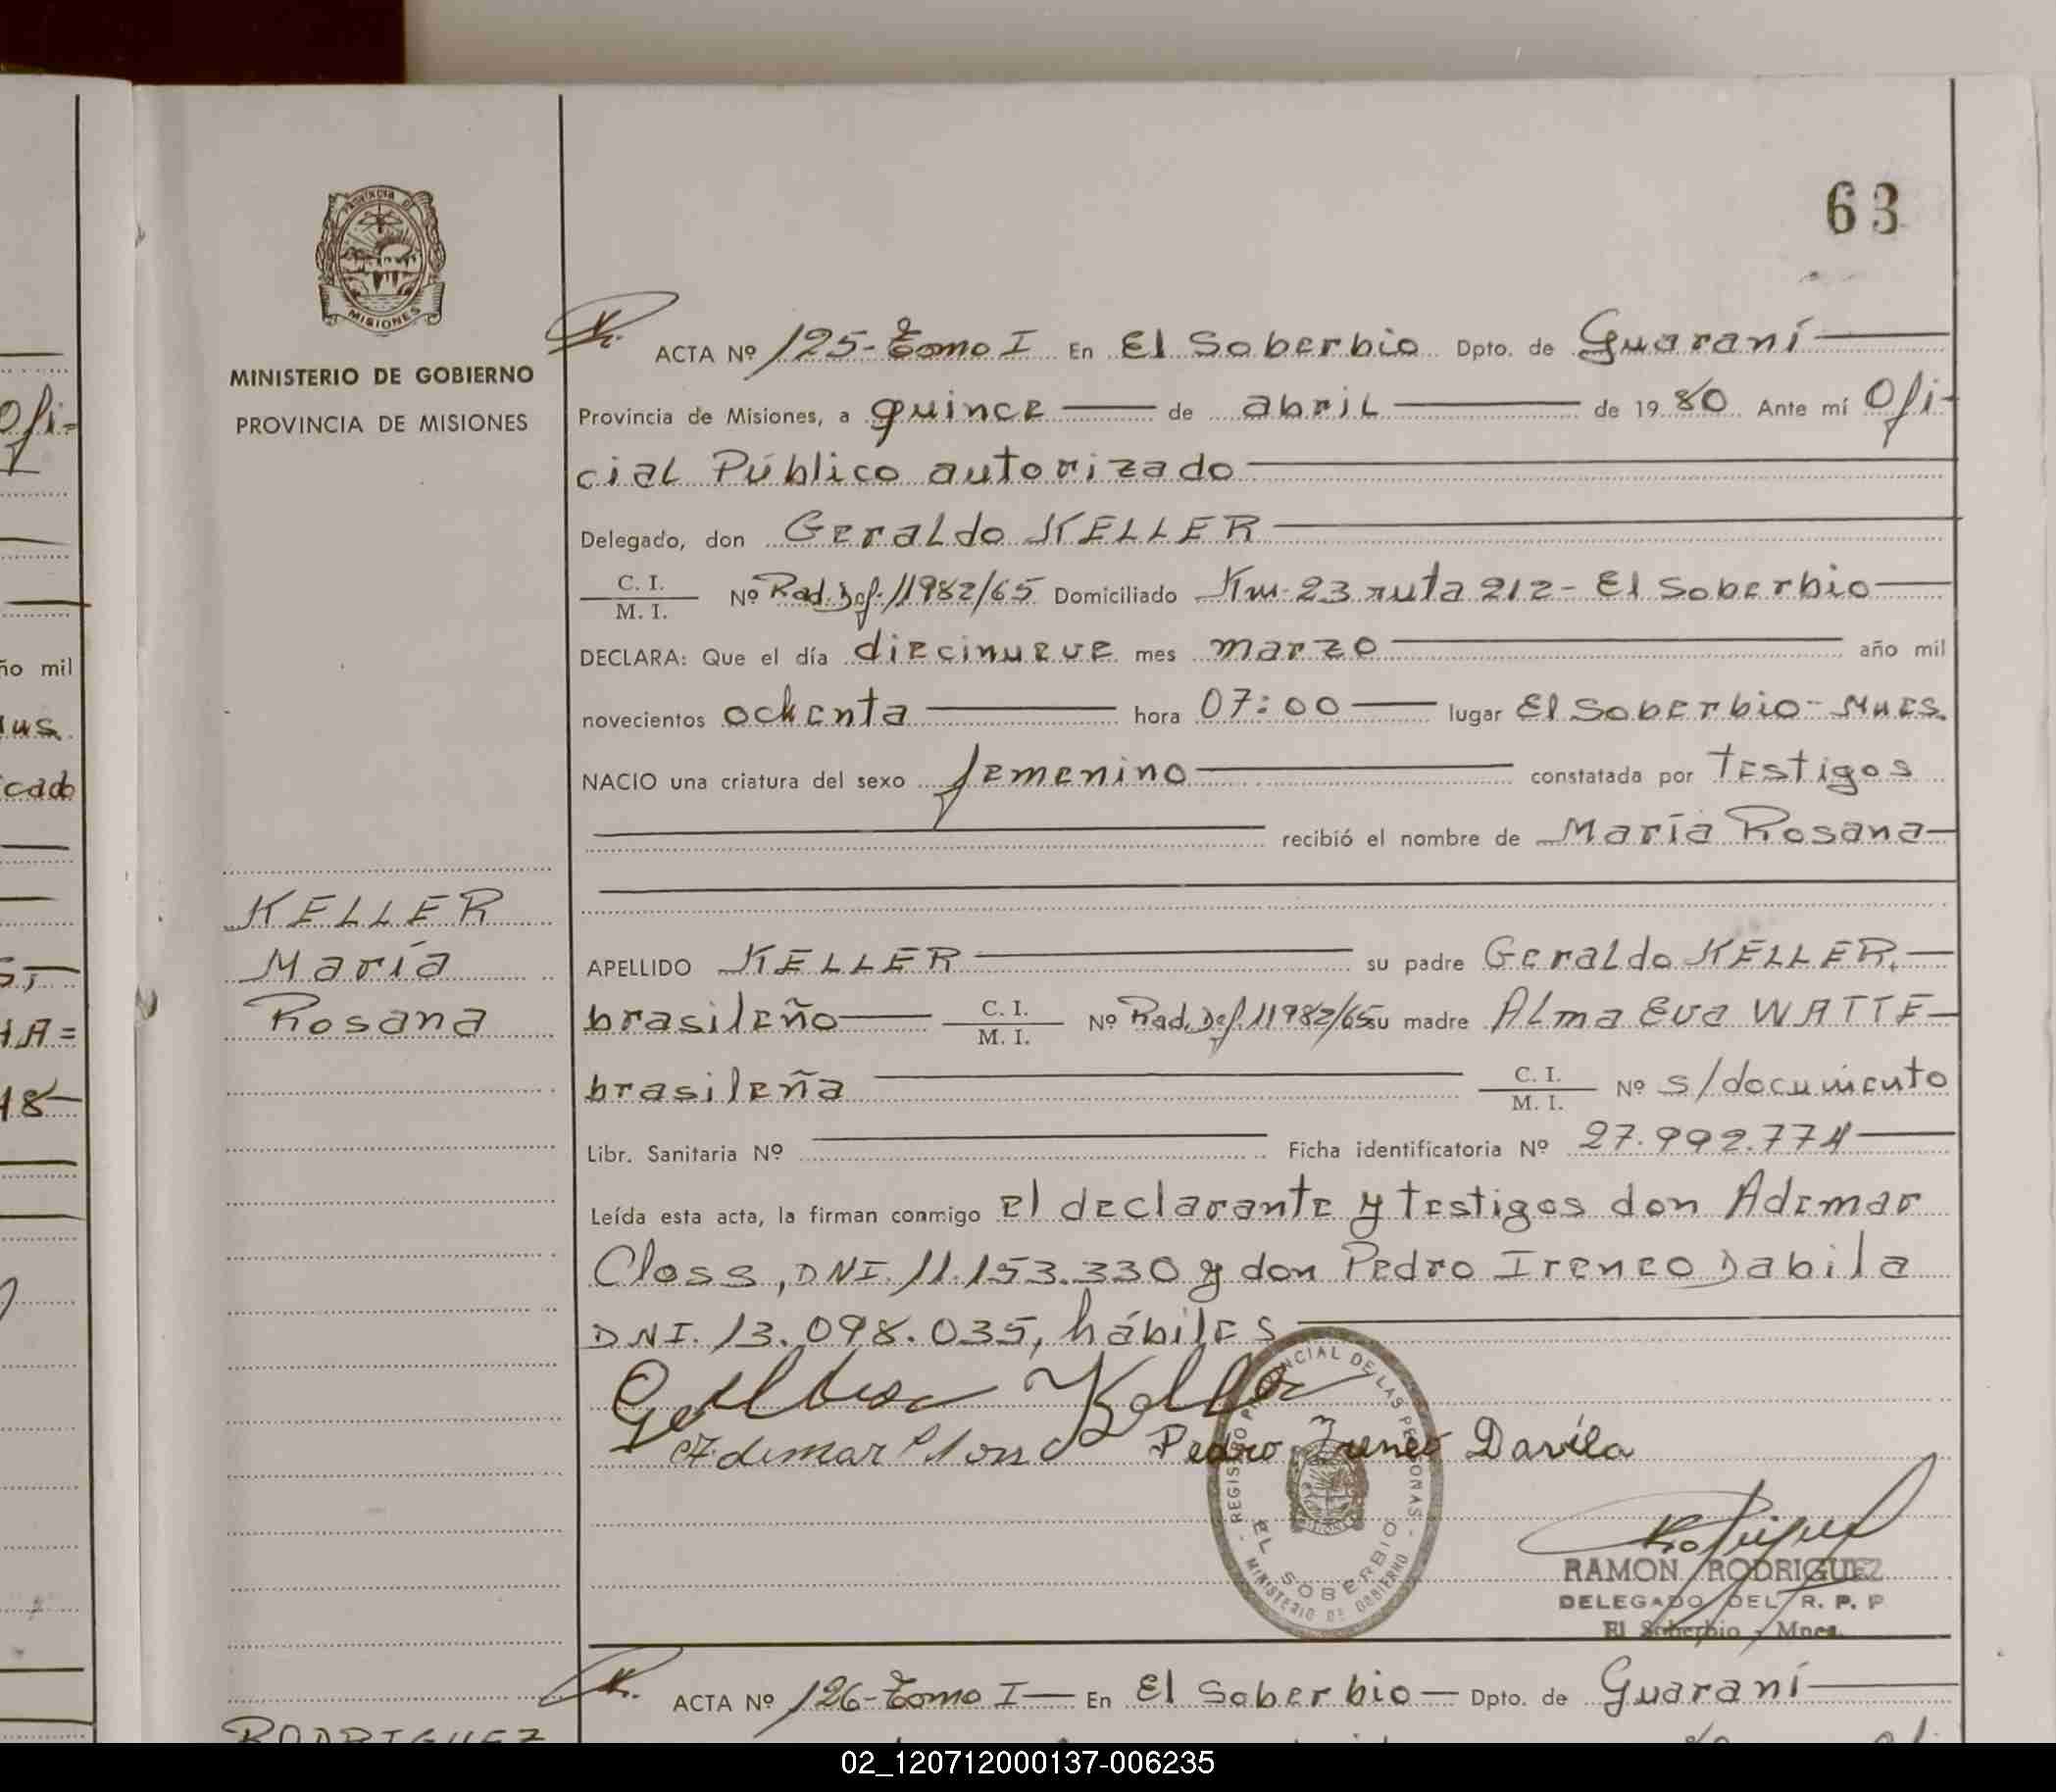 63
MINISTERIO DE GOBIERNO
PROVINCIA DE MISIONES
MISIONES
ACTA Nº 125-Tomo I En El Soberbio Dpto. de Guaraní
Provincia de Misiones, a quince de abril de 1980 Ante mí Ofi-
cial Público autorizado
Delegado, don Geraldo KELLER
C. I.
M. I. Nº Rad. Def. 11982/65 Domiciliado Km 23 ruta 212 - El Soberbio
DECLARA: Que el día diecinueve mes marzo año mil
novecientos ochenta hora 07:00 lugar El Soberbio-Mnes.
NACIO una criatura del sexo femenino constatada por testigos
recibió el nombre de María Rosana
KELLER
María
Rosana
APELLIDO KELLER su padre Geraldo KELLER.
brasileño C. I. M. I. Nº Rad. Def. 11982/65 su madre Alma Eva WATTE
brasileña C. I. M. I. Nº s/documento
Libr. Sanitaria Nº Ficha identificatoria Nº 27.992.774
Leída esta acta, la firman conmigo el declarante y testigos don Ademar
Closs, DNI. 11.153.330 y don Pedro Ireneo Dabila
DNI. 13.098.035, hábiles
Keller
Ademar Pedro Ireneo Davila
REGISTRO PROVINCIAL DE LAS PERSONAS
EL SOBERBIO
MINISTERIO DE GOBIERNO
RAMON RODRIGUEZ
DELEGADO DEL R. P. P
El Soberbio - Mnes.
ACTA Nº 126-Tomo I En El Soberbio Dpto. de Guaraní
RODRIGUEZ
Ofi-
ño mil
cado
02_120712000137-006235